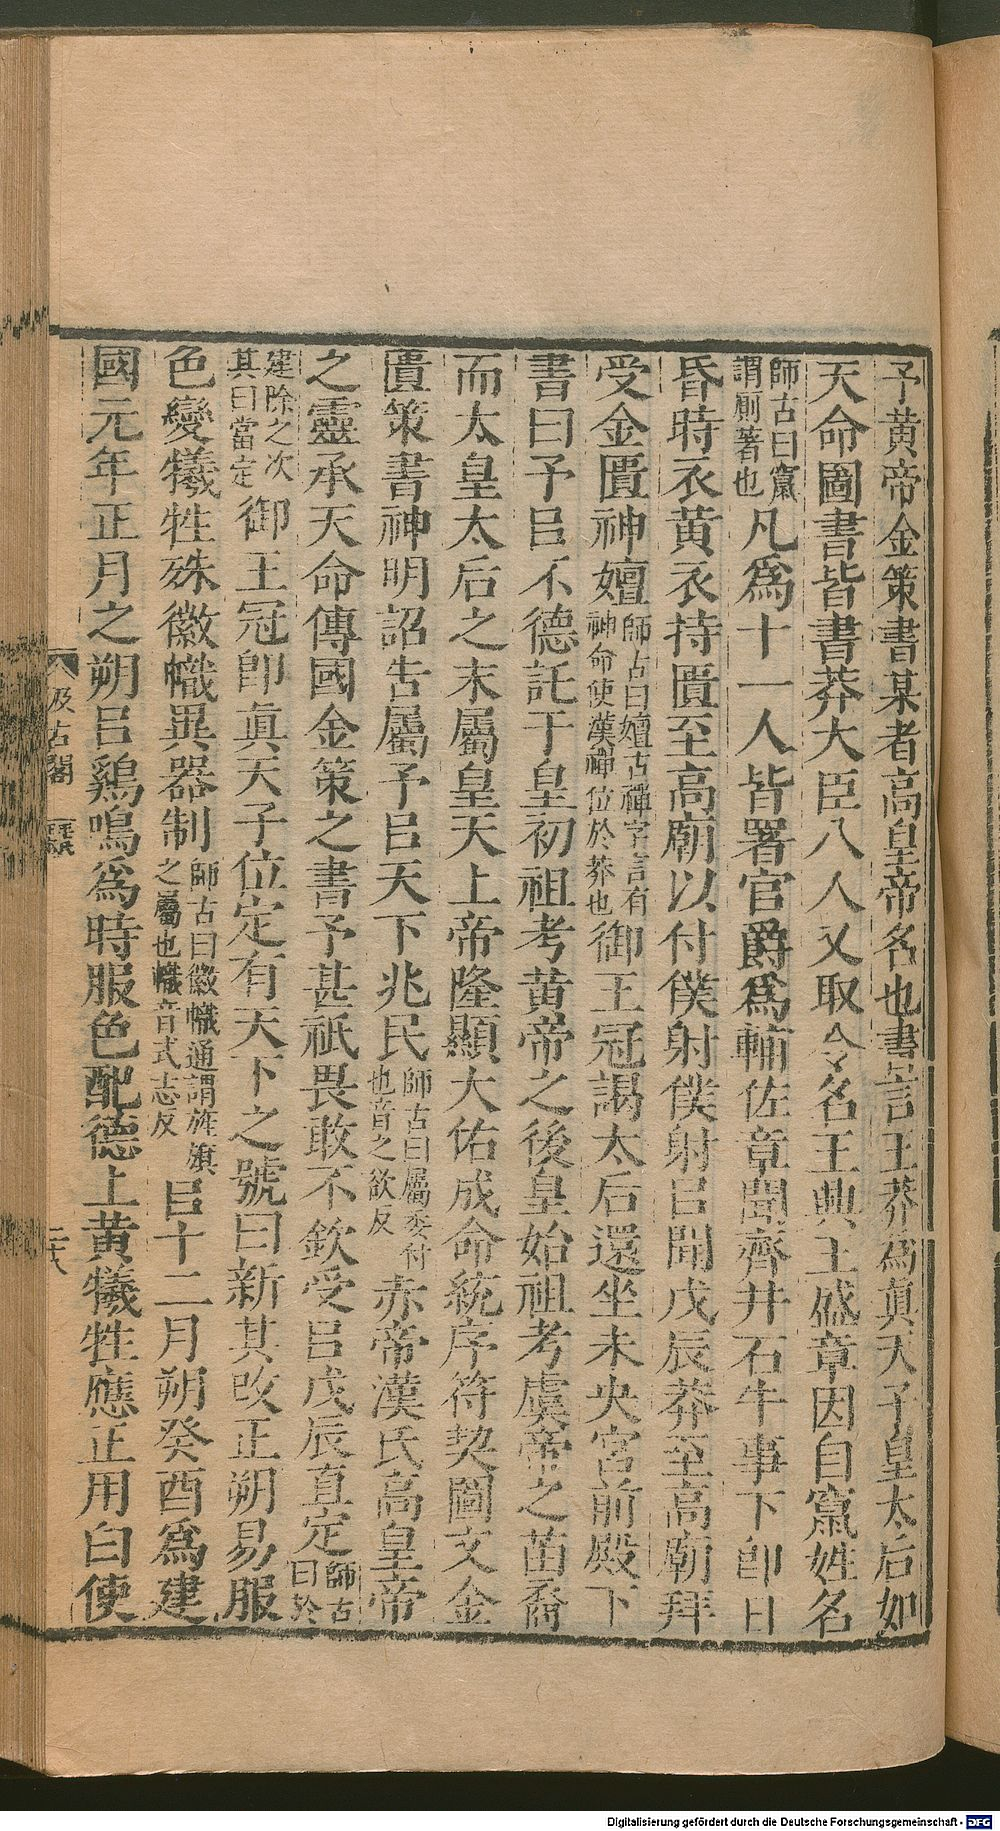 予黄帝金策書某者高皇帝名也書言王莽為真天子皇太后如
天命圖書皆書莽大臣八人又取令名王興王盛章因自竄姓名
師古曰竄
謂厠著也
凡爲十一人皆署官爵爲輔佐章聞齊井石牛事下卽日
昏時衣黄衣持匱至高廟以付僕射僕射㠯聞戊辰莽至高廟拜
受金匱神嬗
師古曰嬗古禪字言有
神命使漢禪位於莽也
御王冠謁太后還坐未央宫前殿下
書曰予㠯不德託于皇初祖考黄帝之後皇始祖考虞帝之苗裔
而太皇太后之末屬皇天上帝隆顯大佑成命統序符契圖文金
匱策書神明詔告屬予㠯天下兆民
師古曰屬委付
也音之欲反
赤帝漢氏高皇帝
之靈承天命傳國金策之書予甚祗畏敢不欽受㠯戊辰直定
師古
曰於
建除之次
其曰當定
御王冠卽真天子位定有天下之號曰新其改正朔易服
色變犧牲殊徽幟異器制
師古曰徽幟通謂旌旗
之屬也幟音式志反
㠯十二月朔癸酉爲建
國元年正月之朔㠯鷄鳴爲時服色配德上黄犧牲應正用白使
汲古閣
Digitalisierung gefördert durch die Deutsche Forschungsgemeinschaft - DFG